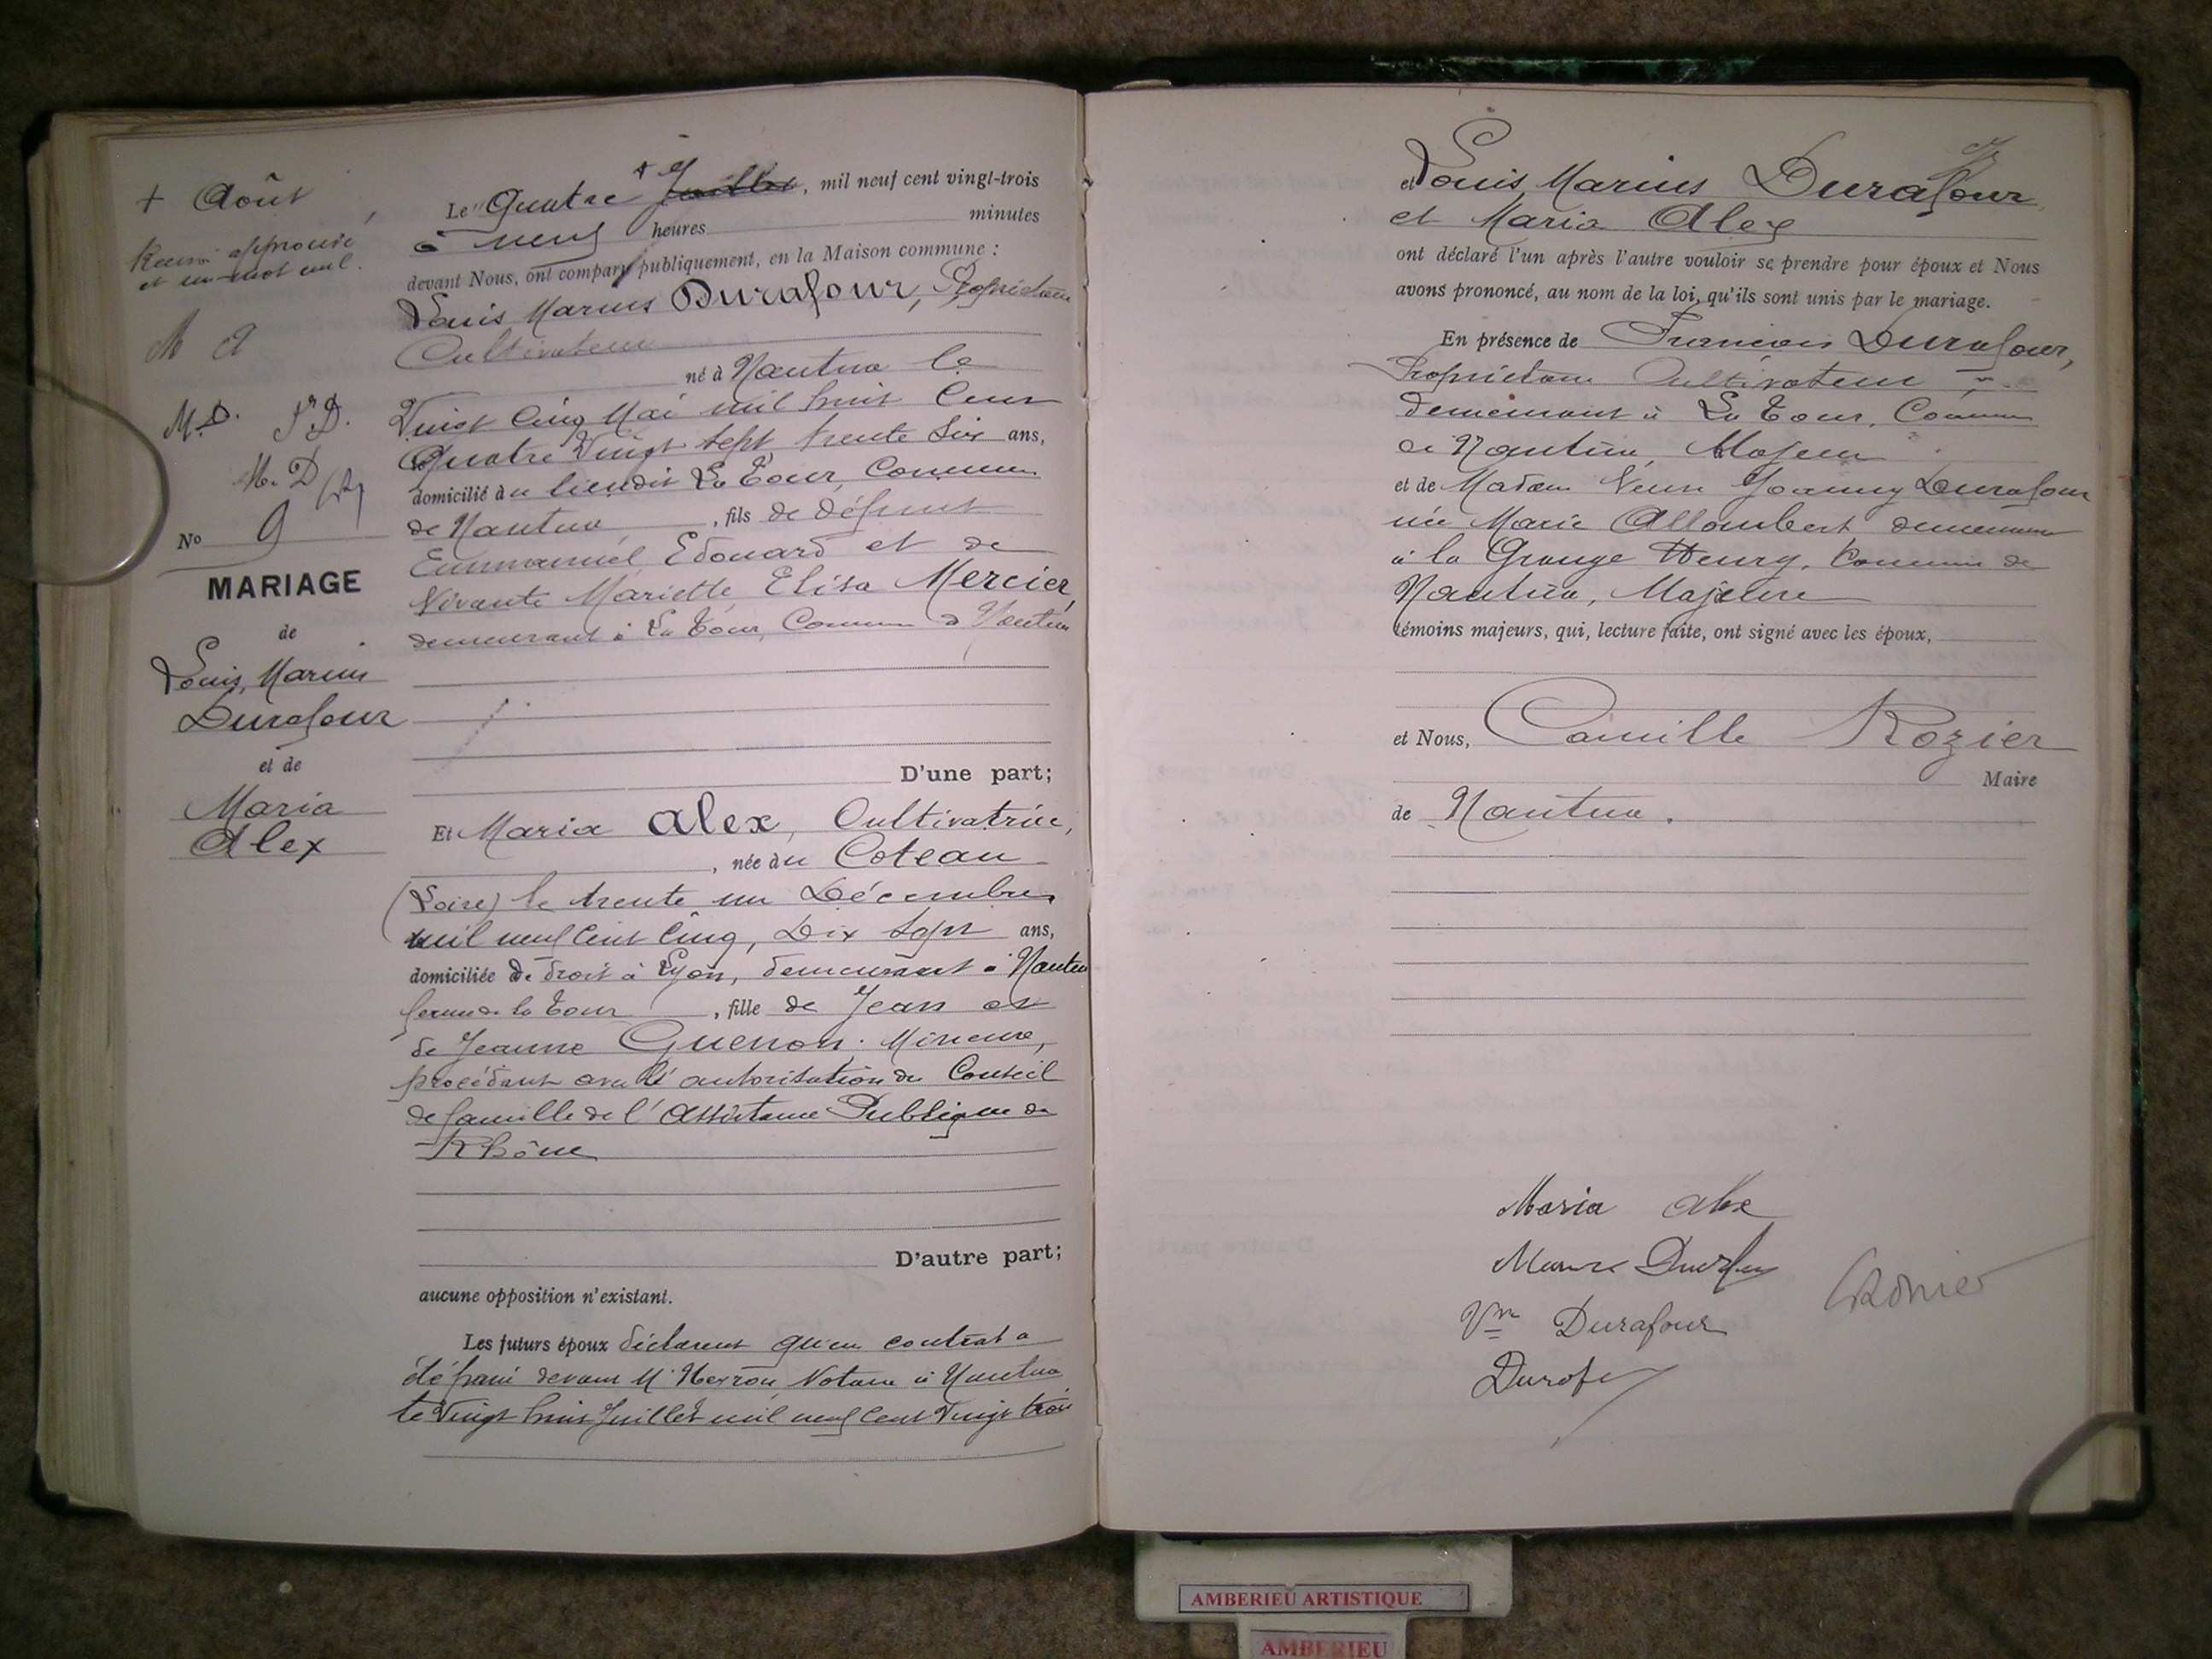 + Août
Renvoi approuvé
et un mot nul.
M A
M.D. Fr D.
M. D
No 9
MARIAGE
de
Louis, Marius
Durafour
et de
Maria
Alex
Le Quatre + Juillet, mil neuf cent vingt-trois
à neuf heures minutes
devant Nous, ont comparu publiquement, en la Maison commune :
Louis Marius Durafour, Propriétaire
Cultivateur
né à Nantua le
Vingt Cinq Mai mil huit Cent
Quatre Vingt Sept trente Six ans,
domicilié au lieudit La Tour, Commune
de Nantua, fils de défunt
Emmanuel Edouard et de
Vivante Mariette Elisa Mercier,
demeurant à La Tour, Commune de Nantua
D'une part;
Et Maria Alex, Cultivatrice,
, née au Coteau
(Loire) le trente un Décembre
mil neuf Cent Cinq, Dix Sept ans,
domiciliée de droit à Lyon, demeurant à Nantua
ferme de la Tour, fille de Jean et
de Jeanne Guenon. Mineure,
procédant avec l'autorisation du Conseil
de famille de l'Assistance Publique du
Rhône
D'autre part;
aucune opposition n'existant.
Les futurs époux déclarent qu'un contrat a
été passé devant M. Notaire à Nantua
le Vingt huit Juillet mil neuf Cent Vingt trois
et Louis Marius Durafour
et Maria Alex
ont déclaré l'un après l'autre vouloir se prendre pour époux et Nous
avons prononcé, au nom de la loi, qu'ils sont unis par le mariage.
En présence de Francois Durafour,
Propriétaire Cultivateur
demeurant à La Tour, Commune
de Nantua, Majeur
et de Madame Veuve Joanny Durafour
née Marie Allombert demeurant
à la Grange Henry, Commune de
Nantua, Majeure
témoins majeurs, qui, lecture faite, ont signé avec les époux,
et Nous, Camille Rozier
Maire
de Nantua.
Maria Alex
Durafour
Vve Durafour
CRozier
AMBERIEU ARTISTIQUE
AMBERIEU